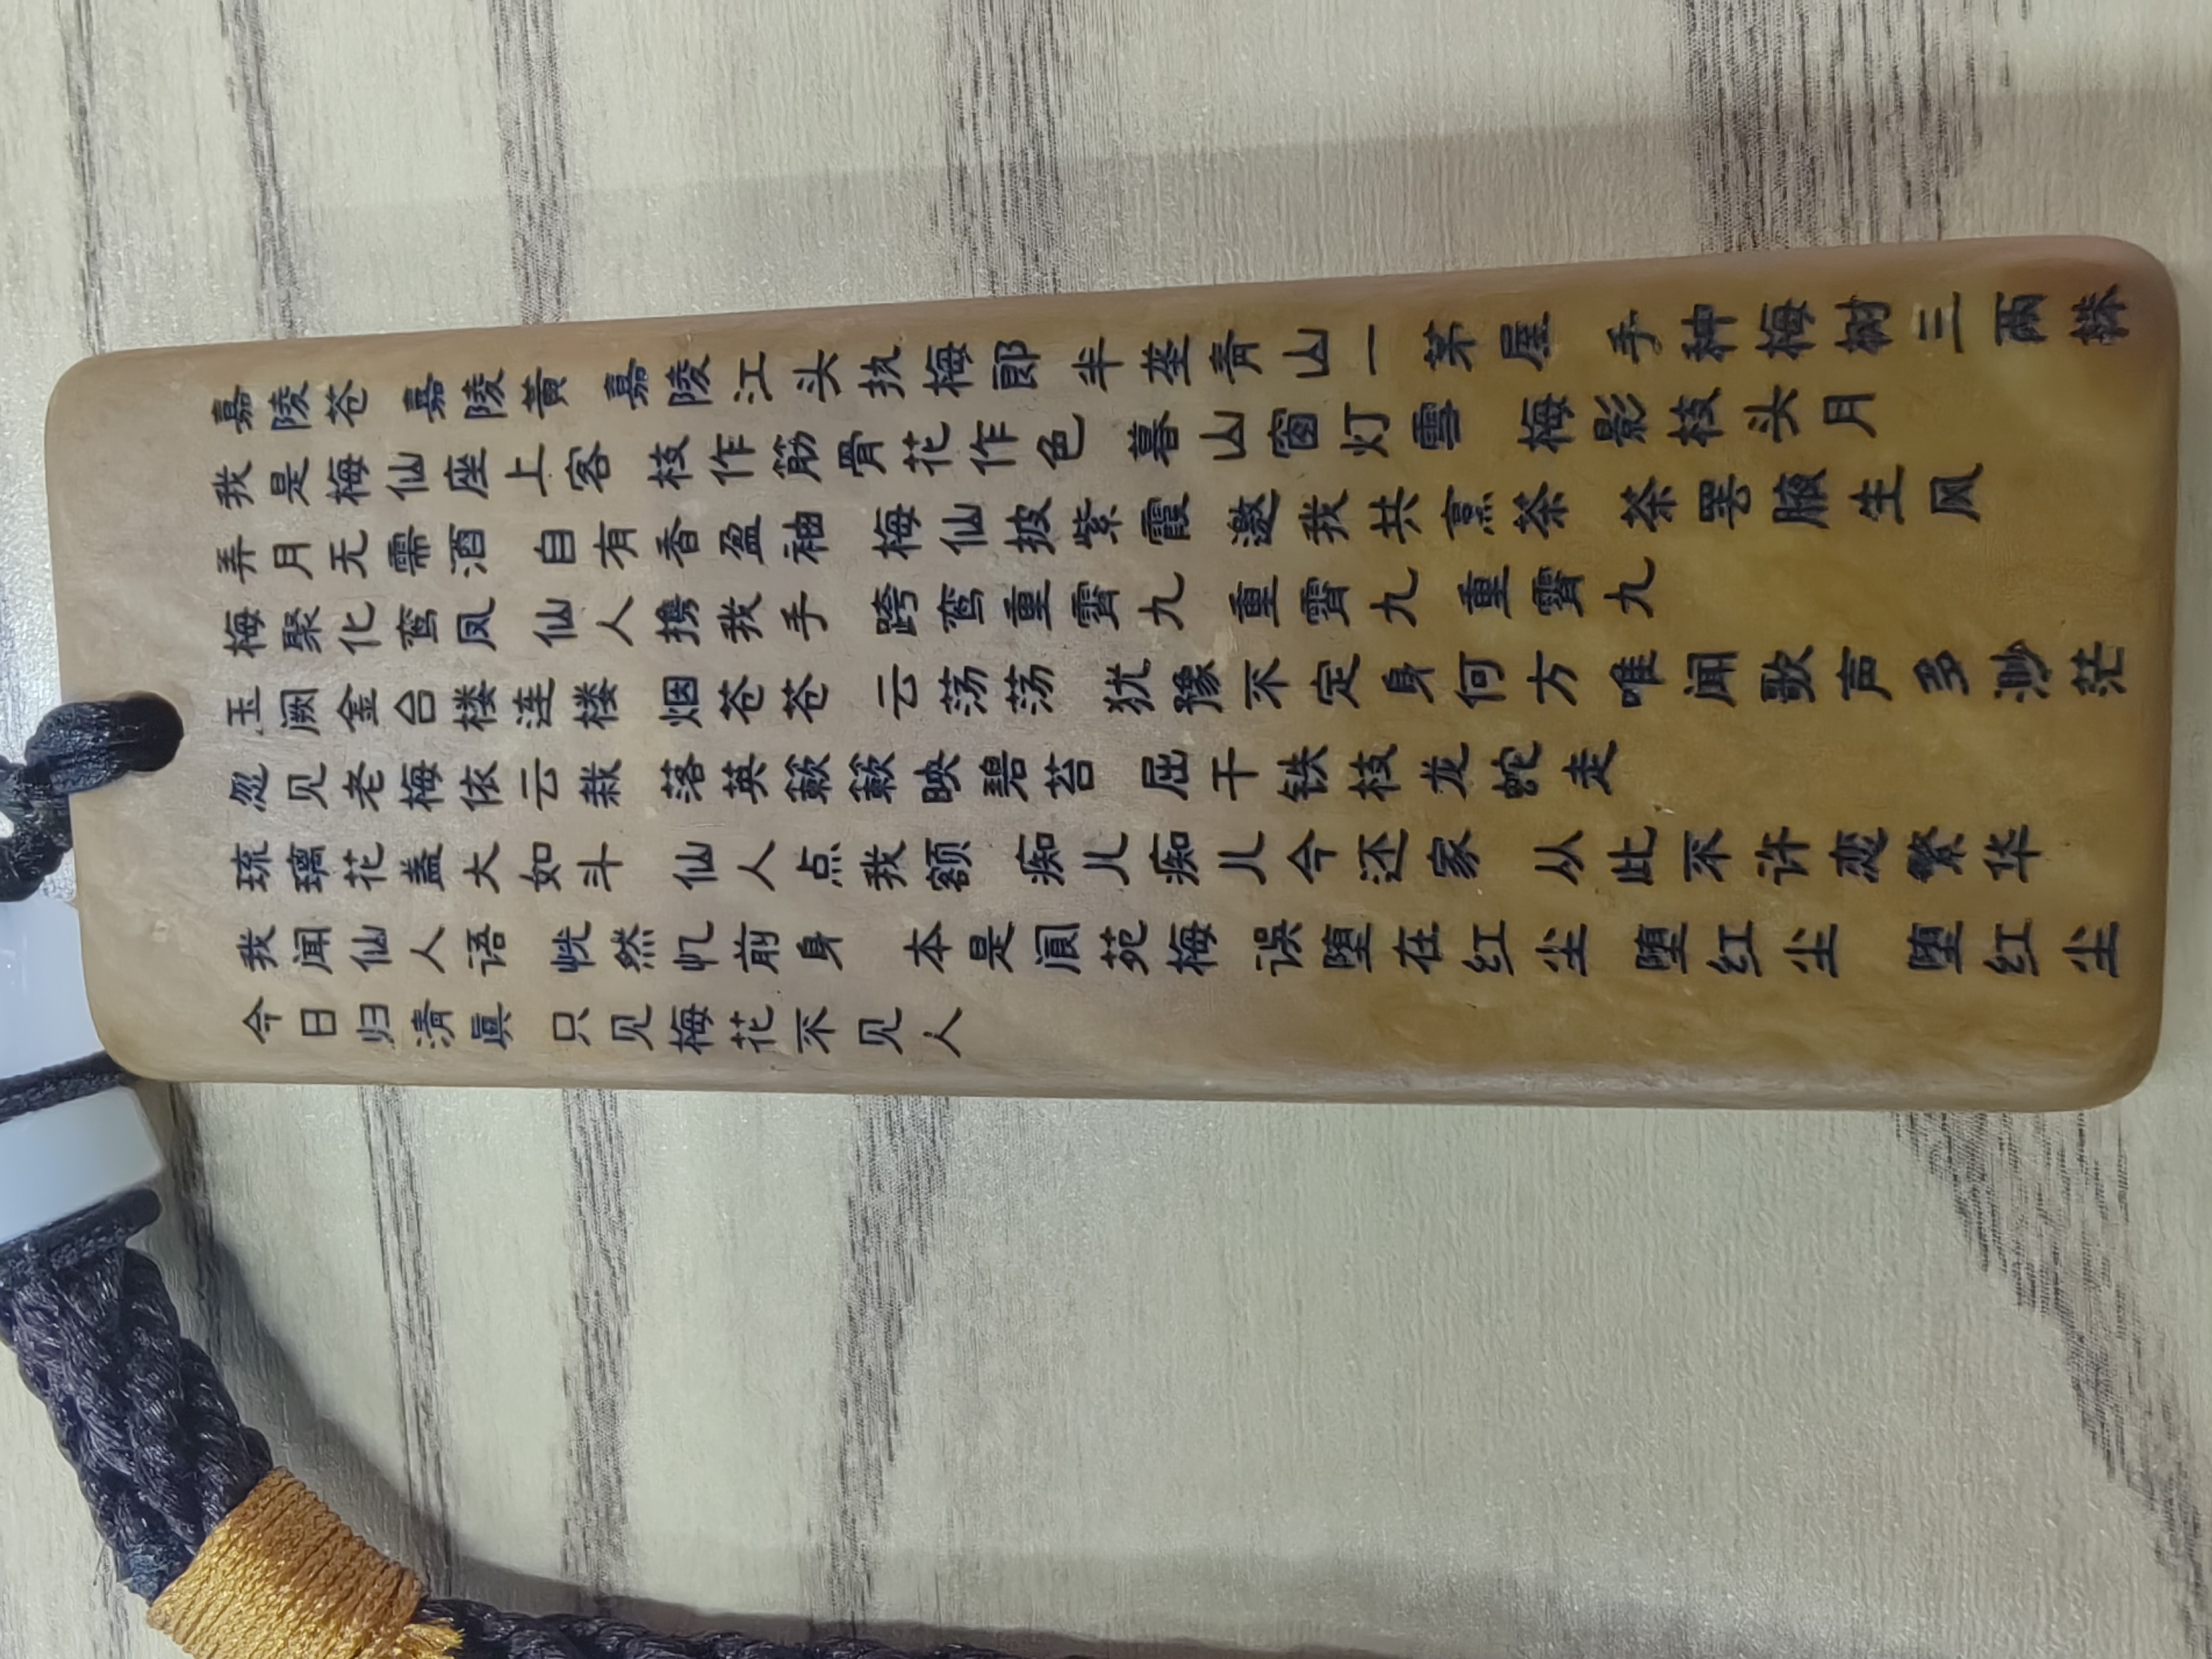 嘉陵苍 嘉陵黄 嘉陵江头执梅郎 半垄青山一茅屋 手种梅树三两株
我是梅仙座上客 枝作筋骨花作色 暮山窗灯雪 梅影枝头月
弄月无需酒 自有香盈袖 梅仙披紫霞 邀我共烹茶 茶罢腋生风
梅聚化鸾凤 仙人携我手 跨鸾重霄九 重霄九 重霄九
玉阙金台楼连楼 烟苍苍 云荡荡 犹豫不定身何方 唯闻歌声多渺茫
忽见老梅依云栽 落英簌簌映碧苔 屈干铁枝龙蛇走
琉璃花盖大如斗 仙人点我额 痴儿痴儿今还家 从此不许恋繁华
我闻仙人语 恍然忆前身 本是阆苑梅 误堕在红尘 堕红尘 堕红尘
今日归清真 只见梅花不见人